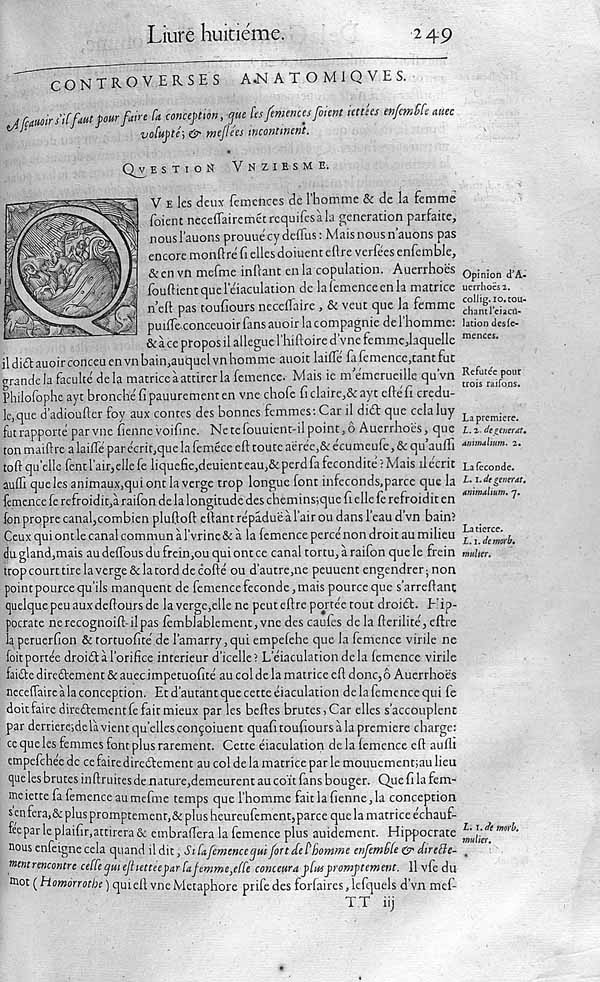 Liure huitiéme.
249
CONTROVERSES ANATOMIQVES.
A sçauoir s'il faut pour faire la conception, que les semences soient iettées ensemble auec
volupté; & meslées incontinent.
QVESTION VNZIESME.
QVE les deux semences de l'homme & de la femme
soient necessairemēt requises à la generation parfaite,
nous l'auons prouué cy dessus: Mais nous n'auons pas
encore monstré si elles doiuent estre versées ensemble,
& en vn mesme instant en la copulation. Auerrhoës
soustient que l'éiaculation de la semence en la matrice
n'est pas tousiours necessaire, & veut que la femme
puisse conceuoir sans auoir la compagnie de l'homme:
& à ce propos il allegue l'histoire d'vne femme, laquelle
il dict auoir conceu en vn bain, auquel vn homme auoit laissé sa semence, tant fut
grande la faculté de la matrice à attirer la semence. Mais ie m'émerueille qu'vn
Philosophe ayt bronché si pauurement en vne chose si claire, & ayt esté si credu-
le, que d'adiouster foy aux contes des bonnes femmes: Car il dict que cela luy
fut rapporté par vne sienne voisine. Ne te souuient-il point, ô Auerrhoës, que
ton maistre a laissé par écrit, que la semēce est toute aërée, & écumeuse, & qu'aussi
tost qu'elle sent l'air, elle se liquefie, deuient eau, & perd sa fecondité? Mais il écrit
aussi que les animaux, qui ont la verge trop longue sont infeconds, parce que la
semence se refroidit, à raison de la longitude des chemins; que si elle se refroidit en
son propre canal, combien plustost estant répāduë à l'air ou dans l'eau d'vn bain?
Ceux qui ont le canal commun à l'vrine & à la semence percé non droit au milieu
du gland, mais au dessous du frein, ou qui ont ce canal tortu, à raison que le frein
trop court tire la verge & la tord de costé ou d'autre, ne peuuent engendrer; non
point pource qu'ils manquent de semence feconde, mais pource que s'arrestant
quelque peu aux destours de la verge, elle ne peut estre portée tout droict. Hip-
pocrate ne recognoist-il pas semblablement, vne des causes de la sterilité, estre
la peruersion & tortuosité de l'amarry, qui empesche que la semence virile ne
soit portée droict à l'orifice interieur d'icelle? L'éiaculation de la semence virile
faicte directement & auec impetuosité au col de la matrice est donc, ô Auerrhoës
necessaire à la conception. Et d'autant que cette éiaculation de la semence qui se
doit faire directement se fait mieux par les bestes brutes, Car elles s'accouplent
par derriere; de là vient qu'elles conçoiuent quasi tousiours à la premiere charge:
ce que les femmes font plus rarement. Cette éiaculation de la semence est aussi
empeschée de ce faire directement au col de la matrice par le mouuement; au lieu
que les brutes instruites de nature, demeurent au coït sans bouger. Que si la fem-
me iette sa semence au mesme temps que l'homme fait la sienne, la conception
s'en fera, & plus promptement, & plus heureusement, parce que la matrice échauf-
fée par le plaisir, attirera & embrassera la semence plus auidement. Hippocrate
nous enseigne cela quand il dit, Si la semence qui sort de l'homme ensemble & directe-
ment rencontre celle qui est iettée par la femme, elle conceura plus promptement. Il vse du
mot (Homorrothe) qui est vne Metaphore prise des forsaires, lesquels d'vn mes-
TT iij
Opinion d'A-
uerrhoës 2.
collig. 10. tou-
chant l'eiacu-
lation des se-
mences.
Refutée pour
trois raisons.
La premiere.
L. 2. de generat.
animalium. 2.
La seconde.
L. 1. de generat.
animalium. 7.
La tierce.
L. 1. de morb.
mulier.
L. 1. de morb.
mulier.